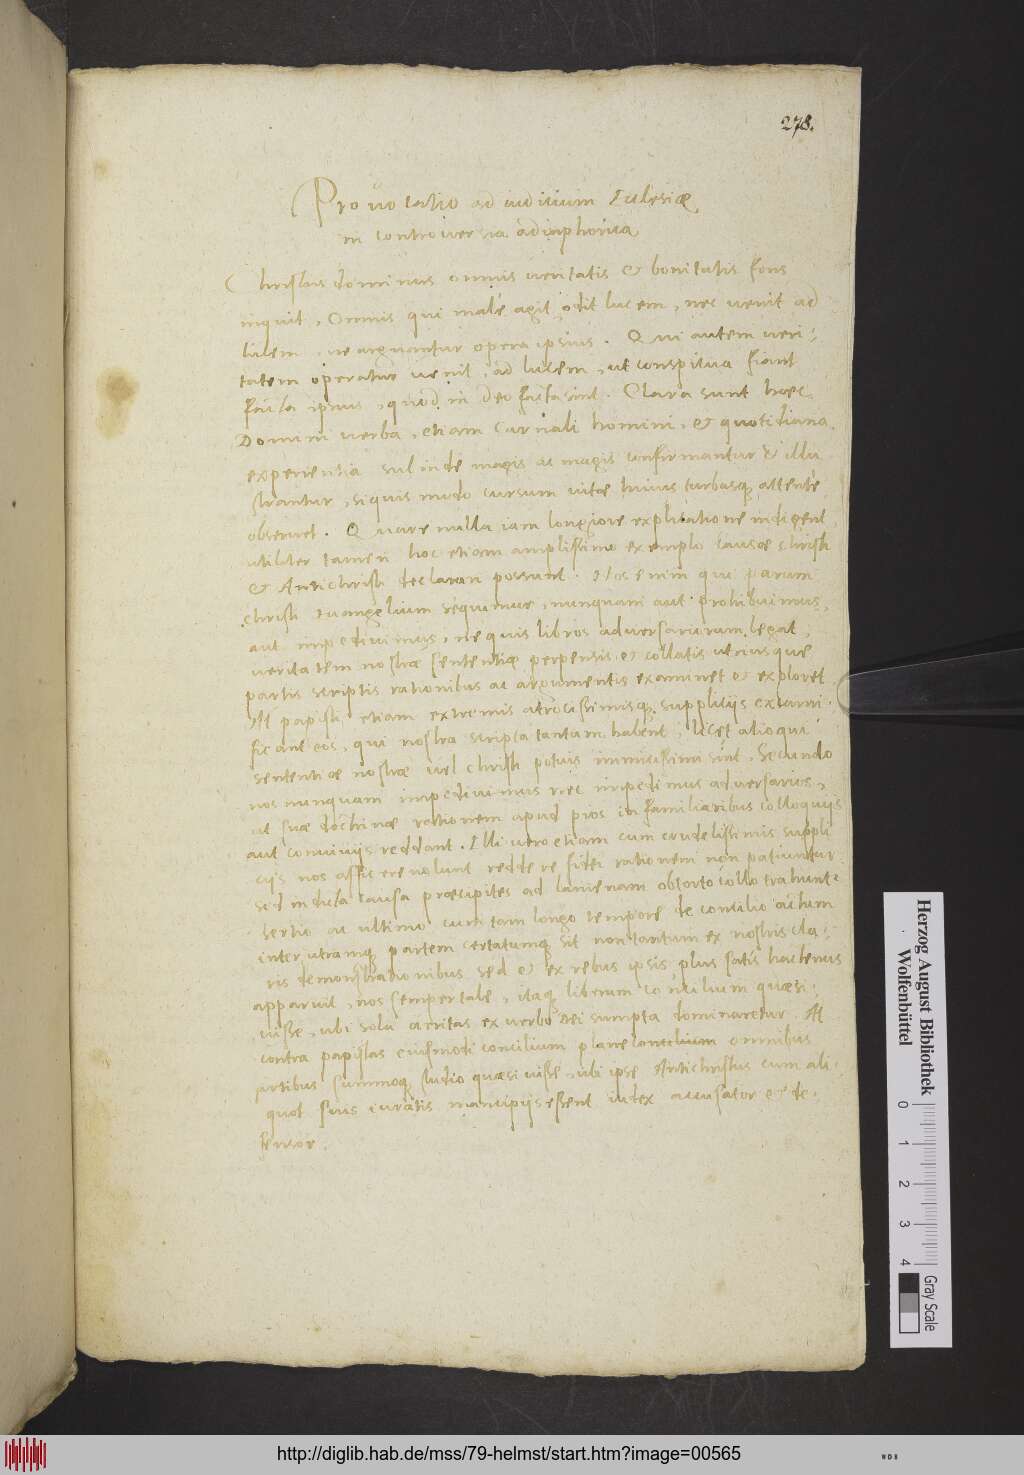 278.
Provocatio ad iudicium Ecclesiæ
in controversia adiaphorica
Christus dominus omnis veritatis & bonitatis fons
inquit, Omnis qui male agit, odit lucem, nec venit ad
lucem, ne arguantur opera ipsius. Qui autem veri-
tatem operatur venit, ad lucem, ut conspicua fiant
facta ipsius, quod in Deo facta sint. Clara sunt hæc
Domini verba, etiam carnali homini, & quotidiana
experientia subinde magis ac magis confirmantur & illu
strantur, siquis modo cursum vitæ huius turbasq; attente
observet. Quare nulla iam longiore explicatione indigent
utiliter tamen hoc etiam amplissimo exemplo causæ Christi
& Antichristi declarari possunt. Nos enim qui parum
Christi Evangelium sequimur, nunquam aut prohibuimus,
aut impedivimus, ne quis libros adversariorum legat,
veritatem nostræ sententiæ perpensis & collatis utriusque
partis scriptis rationibus ac argumentis examinet & exploret
At papistæ etiam extremis atrocissimisq; supplicijs excarni-
ficant eos, qui nostra scripta tantum habent, licet alioqui
sententiæ nostræ vel Christi potius inimicissimi sint. Secundo
nos nunquam impedivimus nec impedimus adversarios,
ut suæ doctrinæ rationem apud pios in familiaribus colloquijs
aut convivijs reddant. Illi vero etiam cum crudelissimis suppli
cijs nos afficere nolunt reddere fidei rationem non patiuntur
sed indicta causa præcipites ad lanienam obtorto collo trahunt.
Tertio ac ultimo cum tam longo tempore de concilio actum
inter utramq; partem certatumq; sit non tantum ex nostris cla-
ris demonstrationibus sed & ex rebus ipsis plus satis hactenus
apparuit, nos semper tale, itaq; liberum concilium quæsi-
visse, ubi sola veritas ex verbo Dei sumpta dominaretur. At
contra papistas eiusmodi concilium plane concilium omnibus
artibus summoq; studio quæsivisse, ubi ipse Antichristus cum ali-
quot suis iuratis mancipijs essent iudex accusator & de-
fensor.
Herzog August Bibliothek
Wolfenbüttel
0 1 2 3 4
Gray Scale
http://diglib.hab.de/mss/79-helmst/start.htm?image=00565